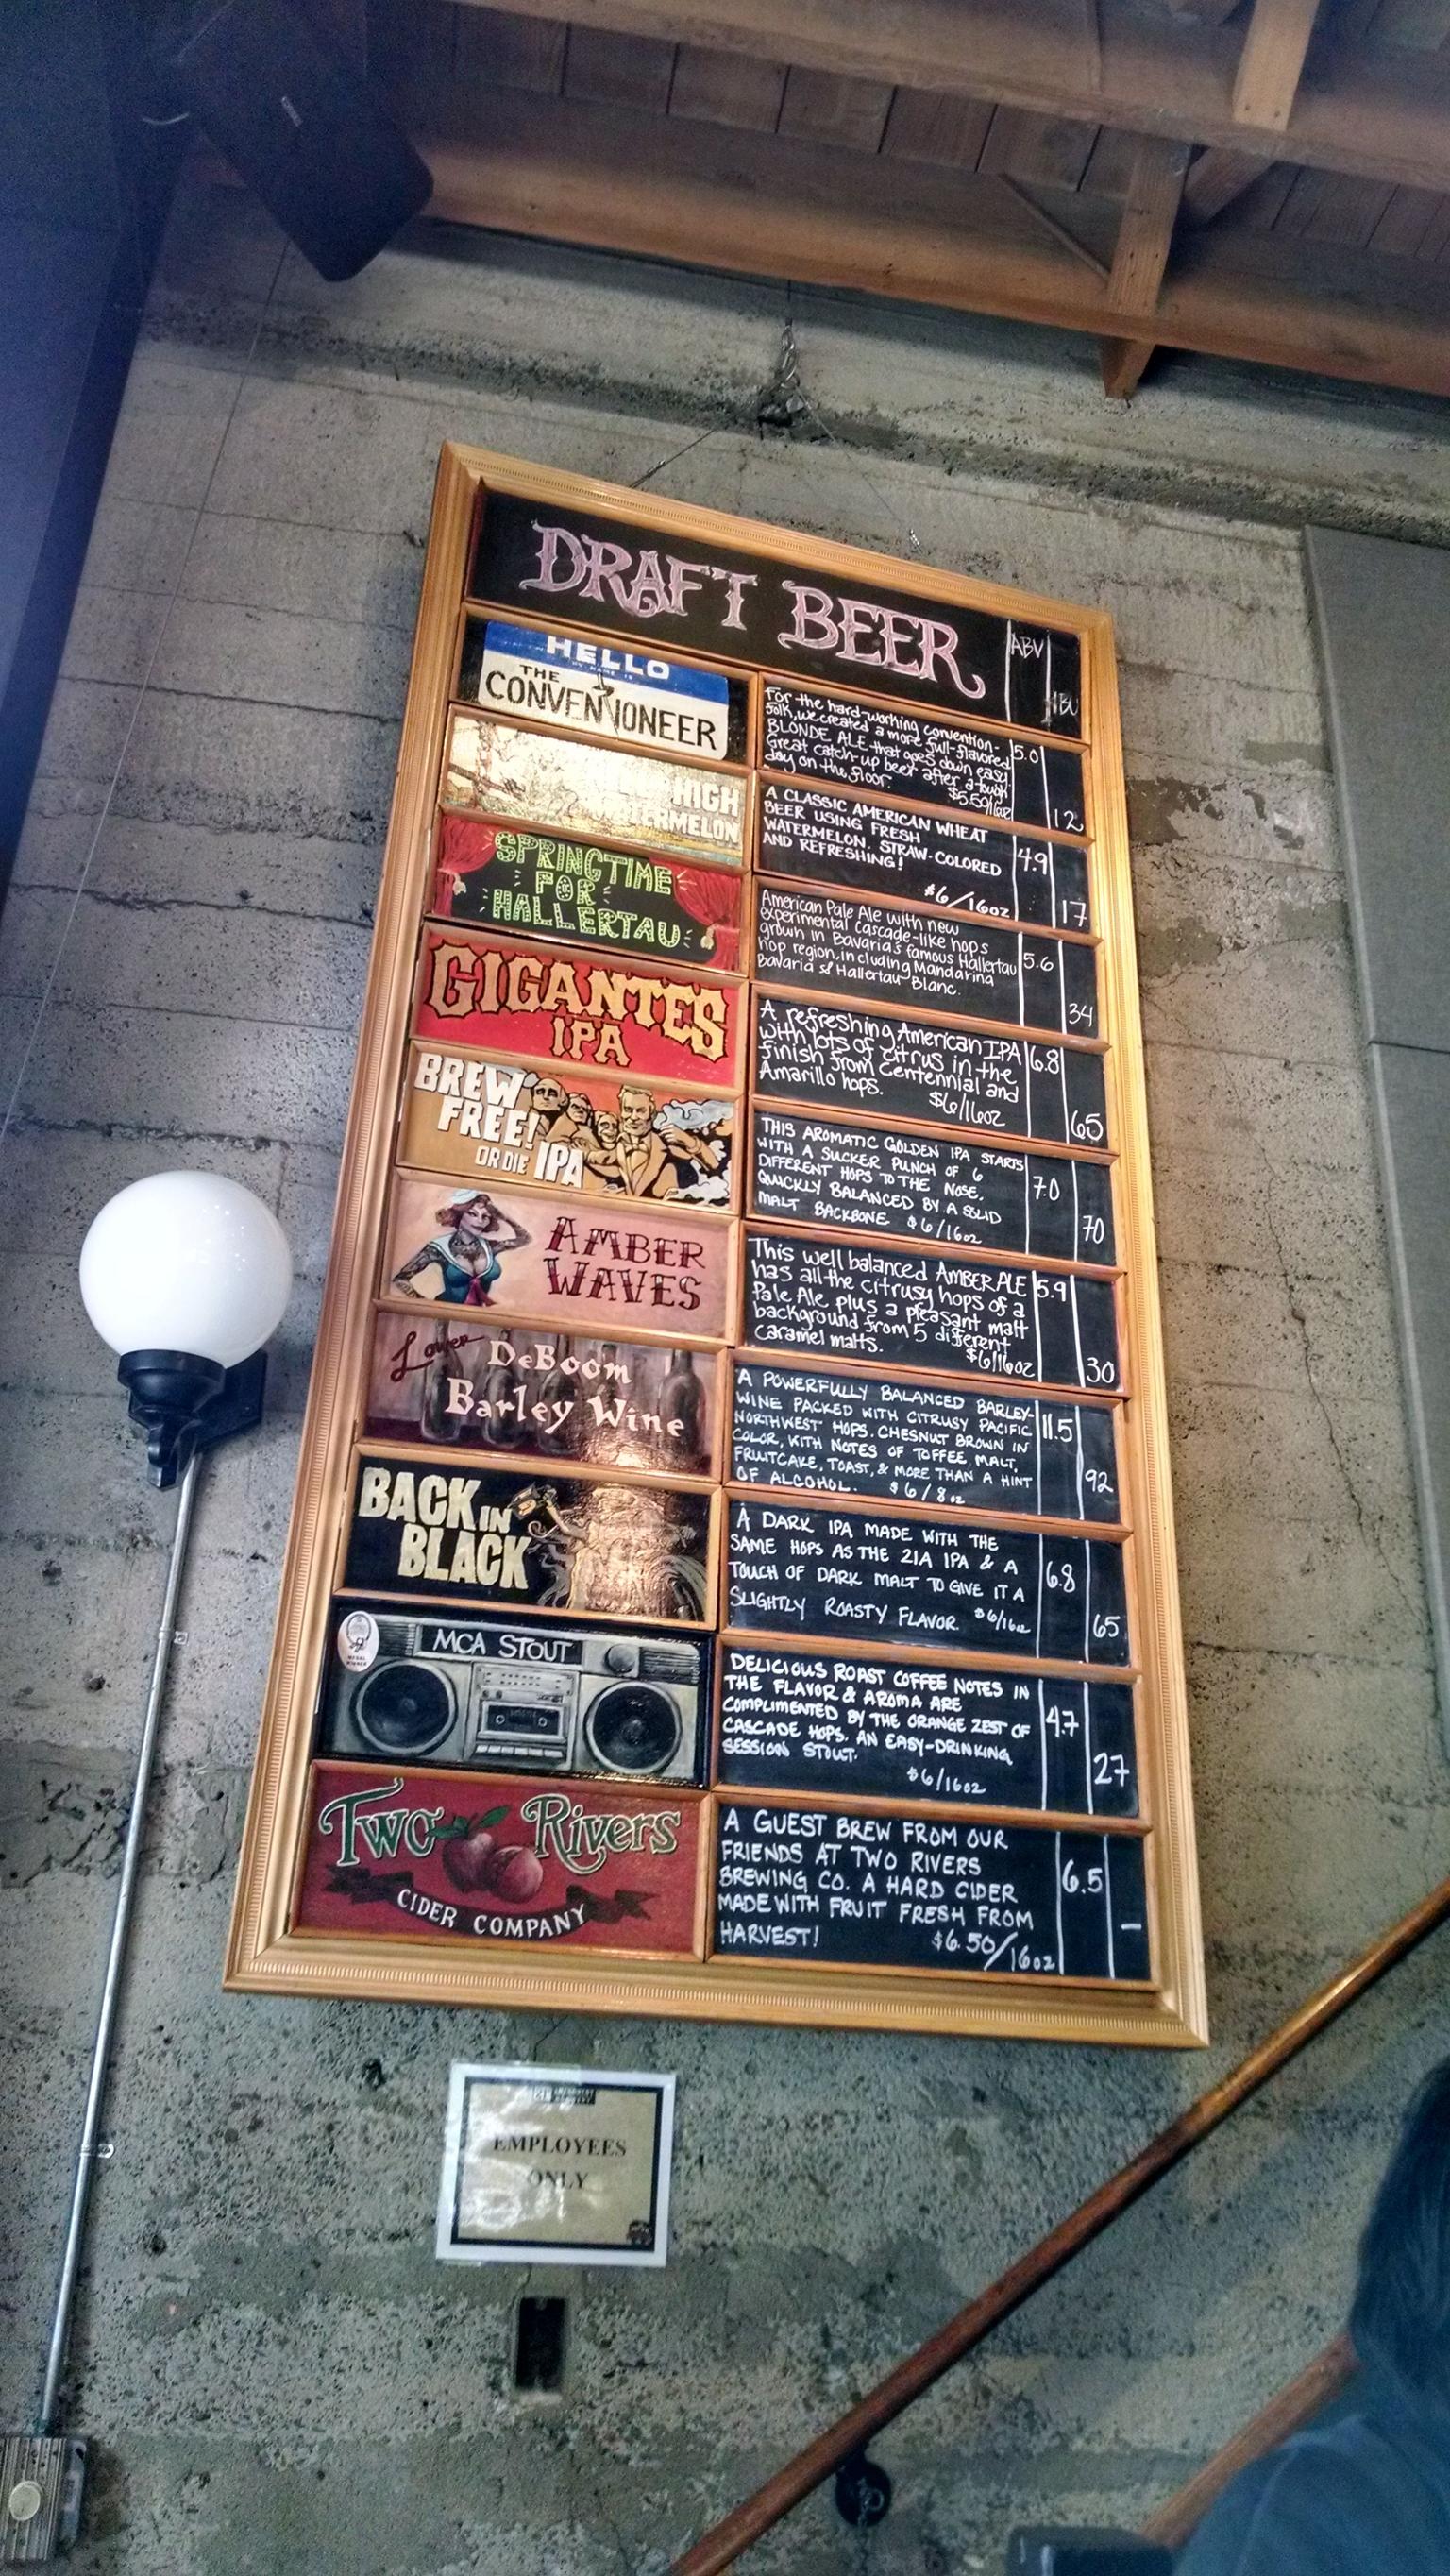 DRAFT BEER
ABV
IBU
HELLO
MY NAME IS
THE
CONVENTIONEER
For the hard-working convention-
folk, we created a more full-flavored
BLONDE ALE that goes down easy.
Great catch-up beer after a tough
day on the floor.
$5.50/16oz
5.0
12
HIGH
WATERMELON
A CLASSIC AMERICAN WHEAT
BEER USING FRESH
WATERMELON. STRAW-COLORED
AND REFRESHING!
$6/16oz
4.9
17
SPRINGTIME
FOR
HALLERTAU
American Pale Ale with new
experimental Cascade-like hops
grown in Bavaria's famous Hallertau
hop region, including Mandarina
Bavaria & Hallertau Blanc.
5.6
34
GIGANTES
IPA
A refreshing American IPA
with lots of citrus in the
finish from Centennial and
Amarillo hops.
$6/16oz
6.8
65
BREW
FREE!
OR DIE IPA
THIS AROMATIC GOLDEN IPA STARTS
WITH A SUCKER PUNCH OF 6
DIFFERENT HOPS TO THE NOSE.
QUICKLY BALANCED BY A SOLID
MALT BACKBONE $6/16oz
7.0
70
AMBER
WAVES
This well balanced AMBER ALE
has all the citrusy hops of a
Pale Ale plus a pleasant malt
background from 5 different
caramel malts.
$6/16oz
5.9
30
Lower DeBoom
Barley Wine
A POWERFULLY BALANCED BARLEY-
WINE PACKED WITH CITRUSY PACIFIC
NORTHWEST HOPS. CHESNUT BROWN IN
COLOR, WITH NOTES OF TOFFEE, MALT,
FRUITCAKE, TOAST, & MORE THAN A HINT
OF ALCOHOL. $6/8oz
11.5
92
BACK IN
BLACK
A DARK IPA MADE WITH THE
SAME HOPS AS THE 21A IPA & A
TOUCH OF DARK MALT TO GIVE IT A
SLIGHTLY ROASTY FLAVOR. $6/16oz
6.8
65
MCA STOUT
DELICIOUS ROAST COFFEE NOTES IN
THE FLAVOR & AROMA ARE
COMPLIMENTED BY THE ORANGE ZEST OF
CASCADE HOPS. AN EASY-DRINKING
SESSION STOUT.
$6/16oz
4.7
27
TWO Rivers
CIDER COMPANY
A GUEST BREW FROM OUR
FRIENDS AT TWO RIVERS
BREWING CO. A HARD CIDER
MADE WITH FRUIT FRESH FROM
HARVEST! $6.50/16oz
6.5
–
EMPLOYEES
ONLY